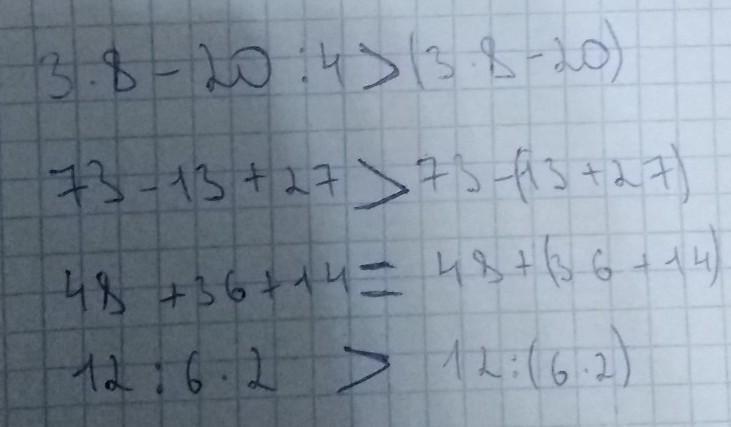 3 · 8 - 20 : 4 > (3 · 8 - 20)
73 - 13 + 27 > 73 - (13 + 27)
48 + 36 + 14 = 48 + (36 + 14)
12 : 6 · 2 > 12 : (6 · 2)